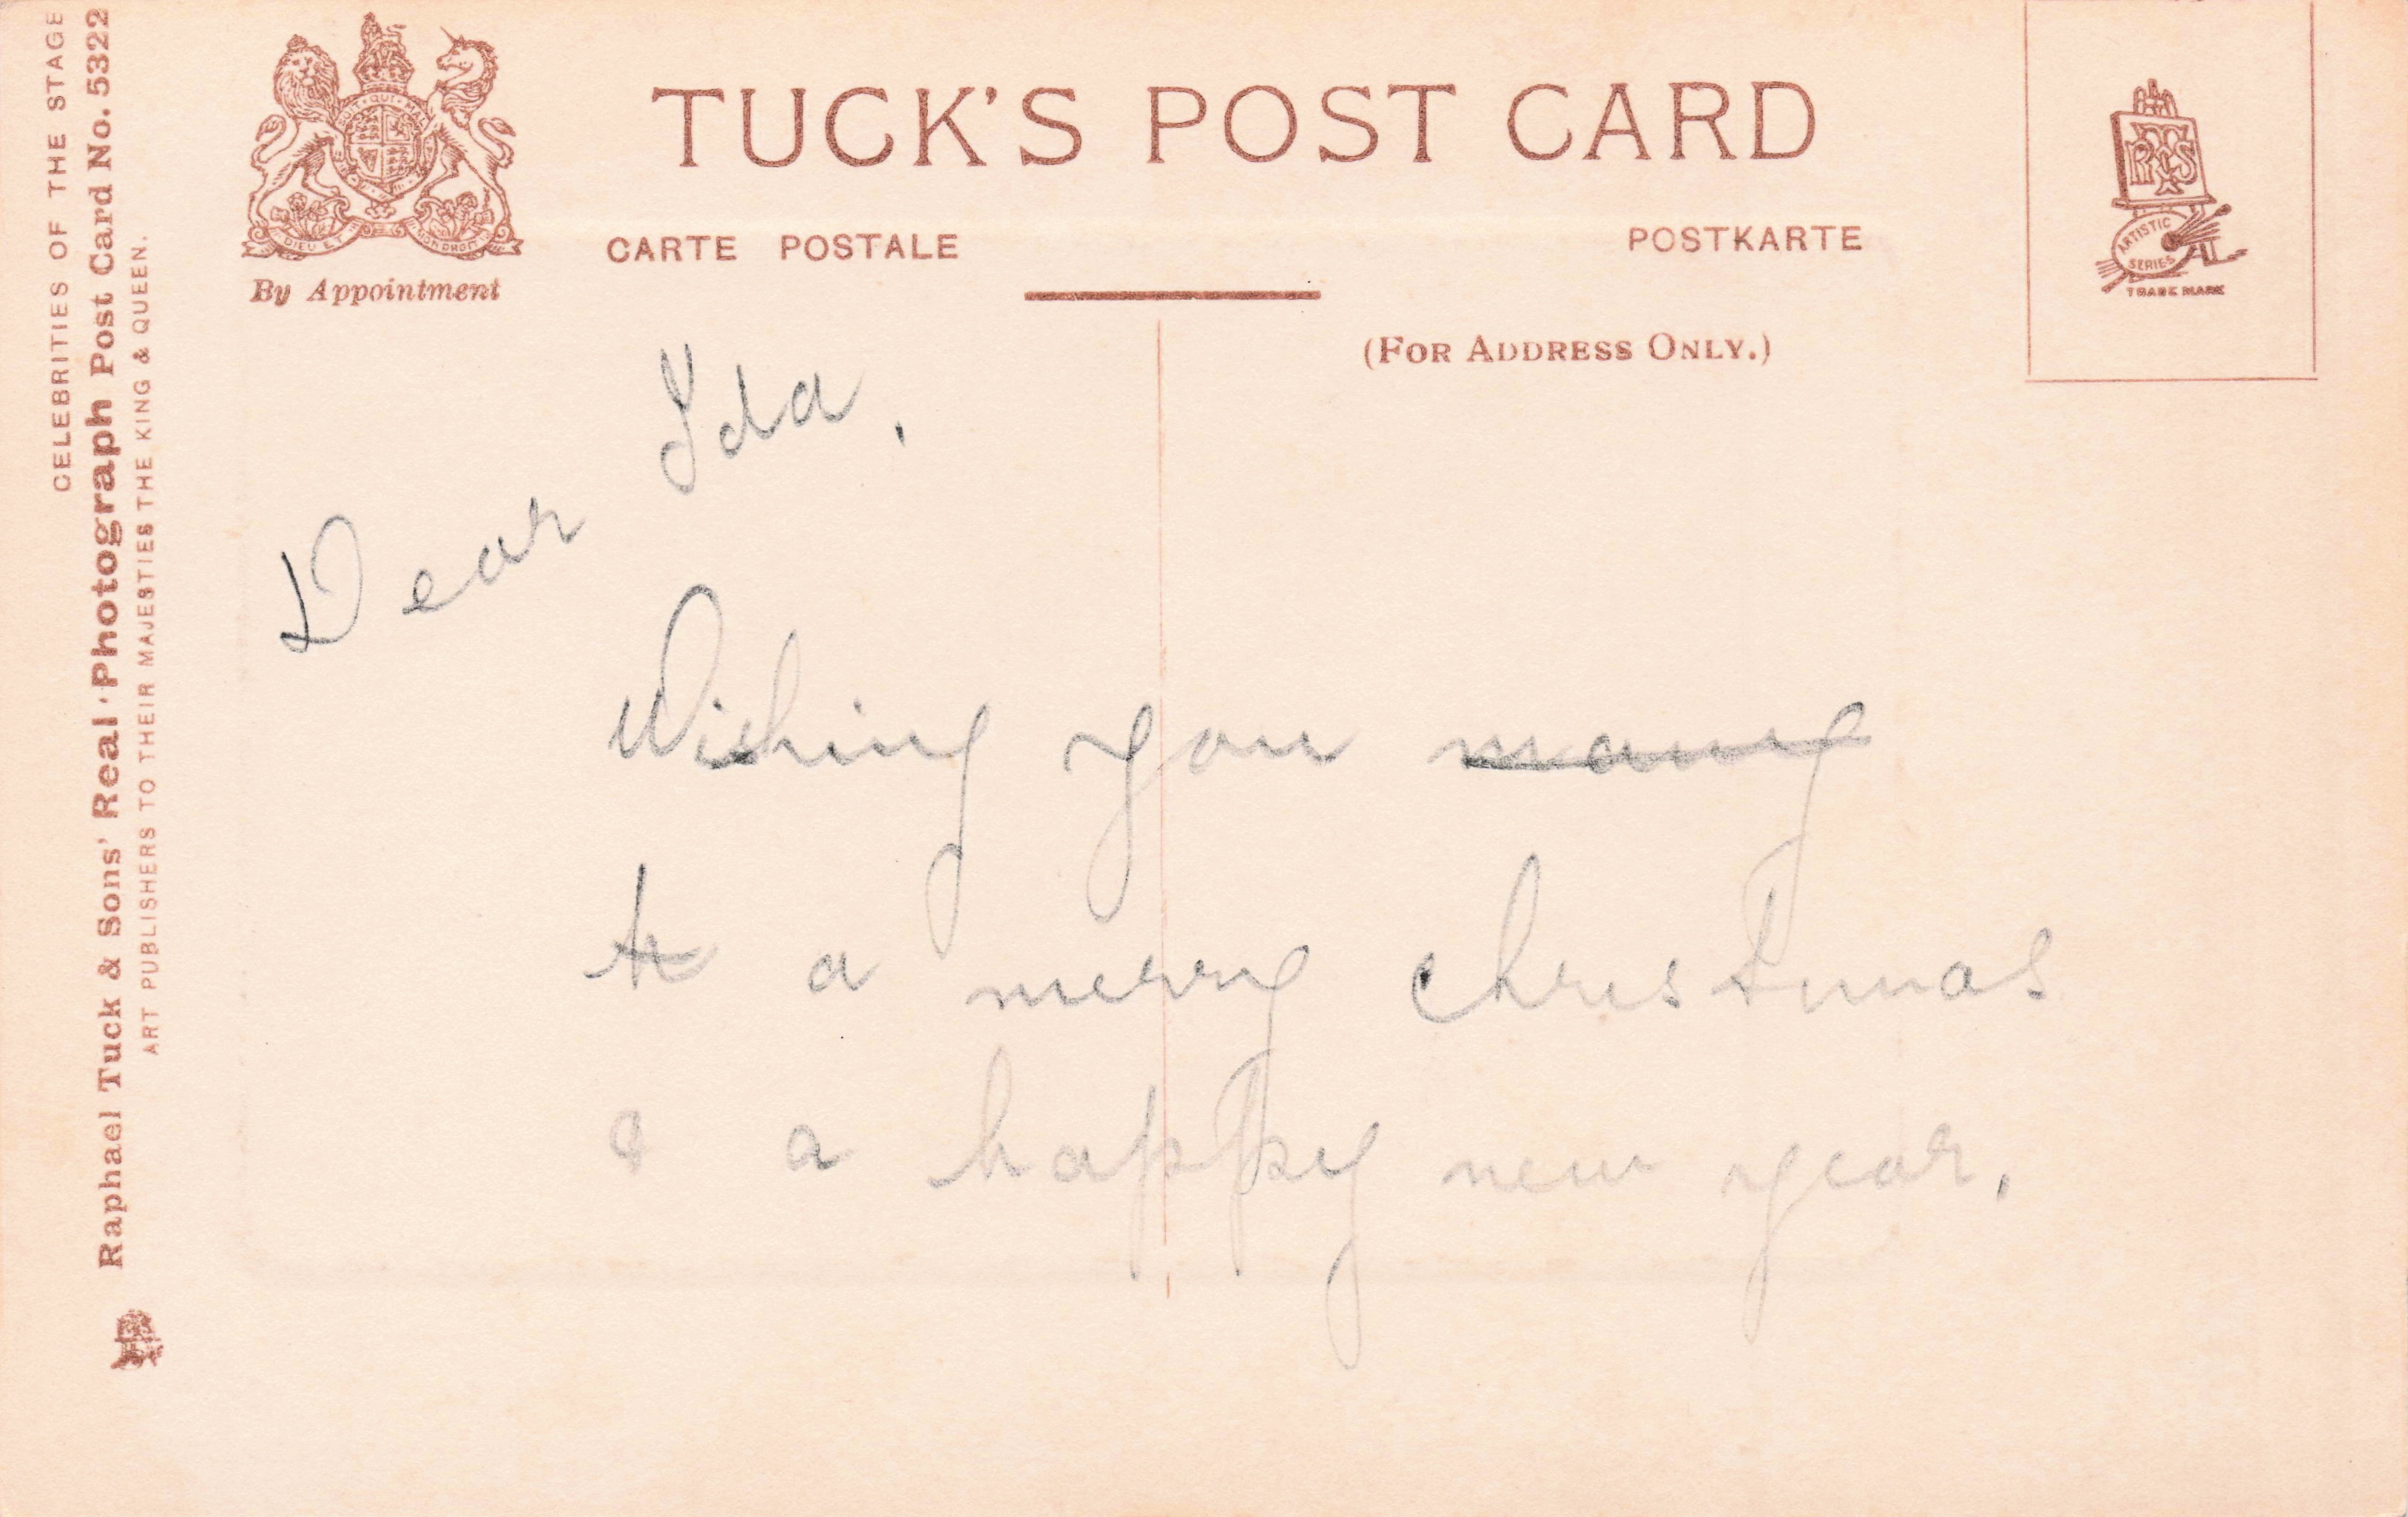 CELEBRITIES OF THE STAGE
Raphael Tuck & Sons' Real Photograph Post Card No. 5322
ART PUBLISHERS TO THEIR MAJESTIES THE KING & QUEEN.
DIEU ET MON DROIT
By Appointment
TUCK'S POST CARD
CARTE POSTALE
POSTKARTE
(FOR ADDRESS ONLY.)
ARTISTIC
SERIES
TRADE MARK
Dear Ida,
Wishing you many
a merry christmas
& a happy new year.